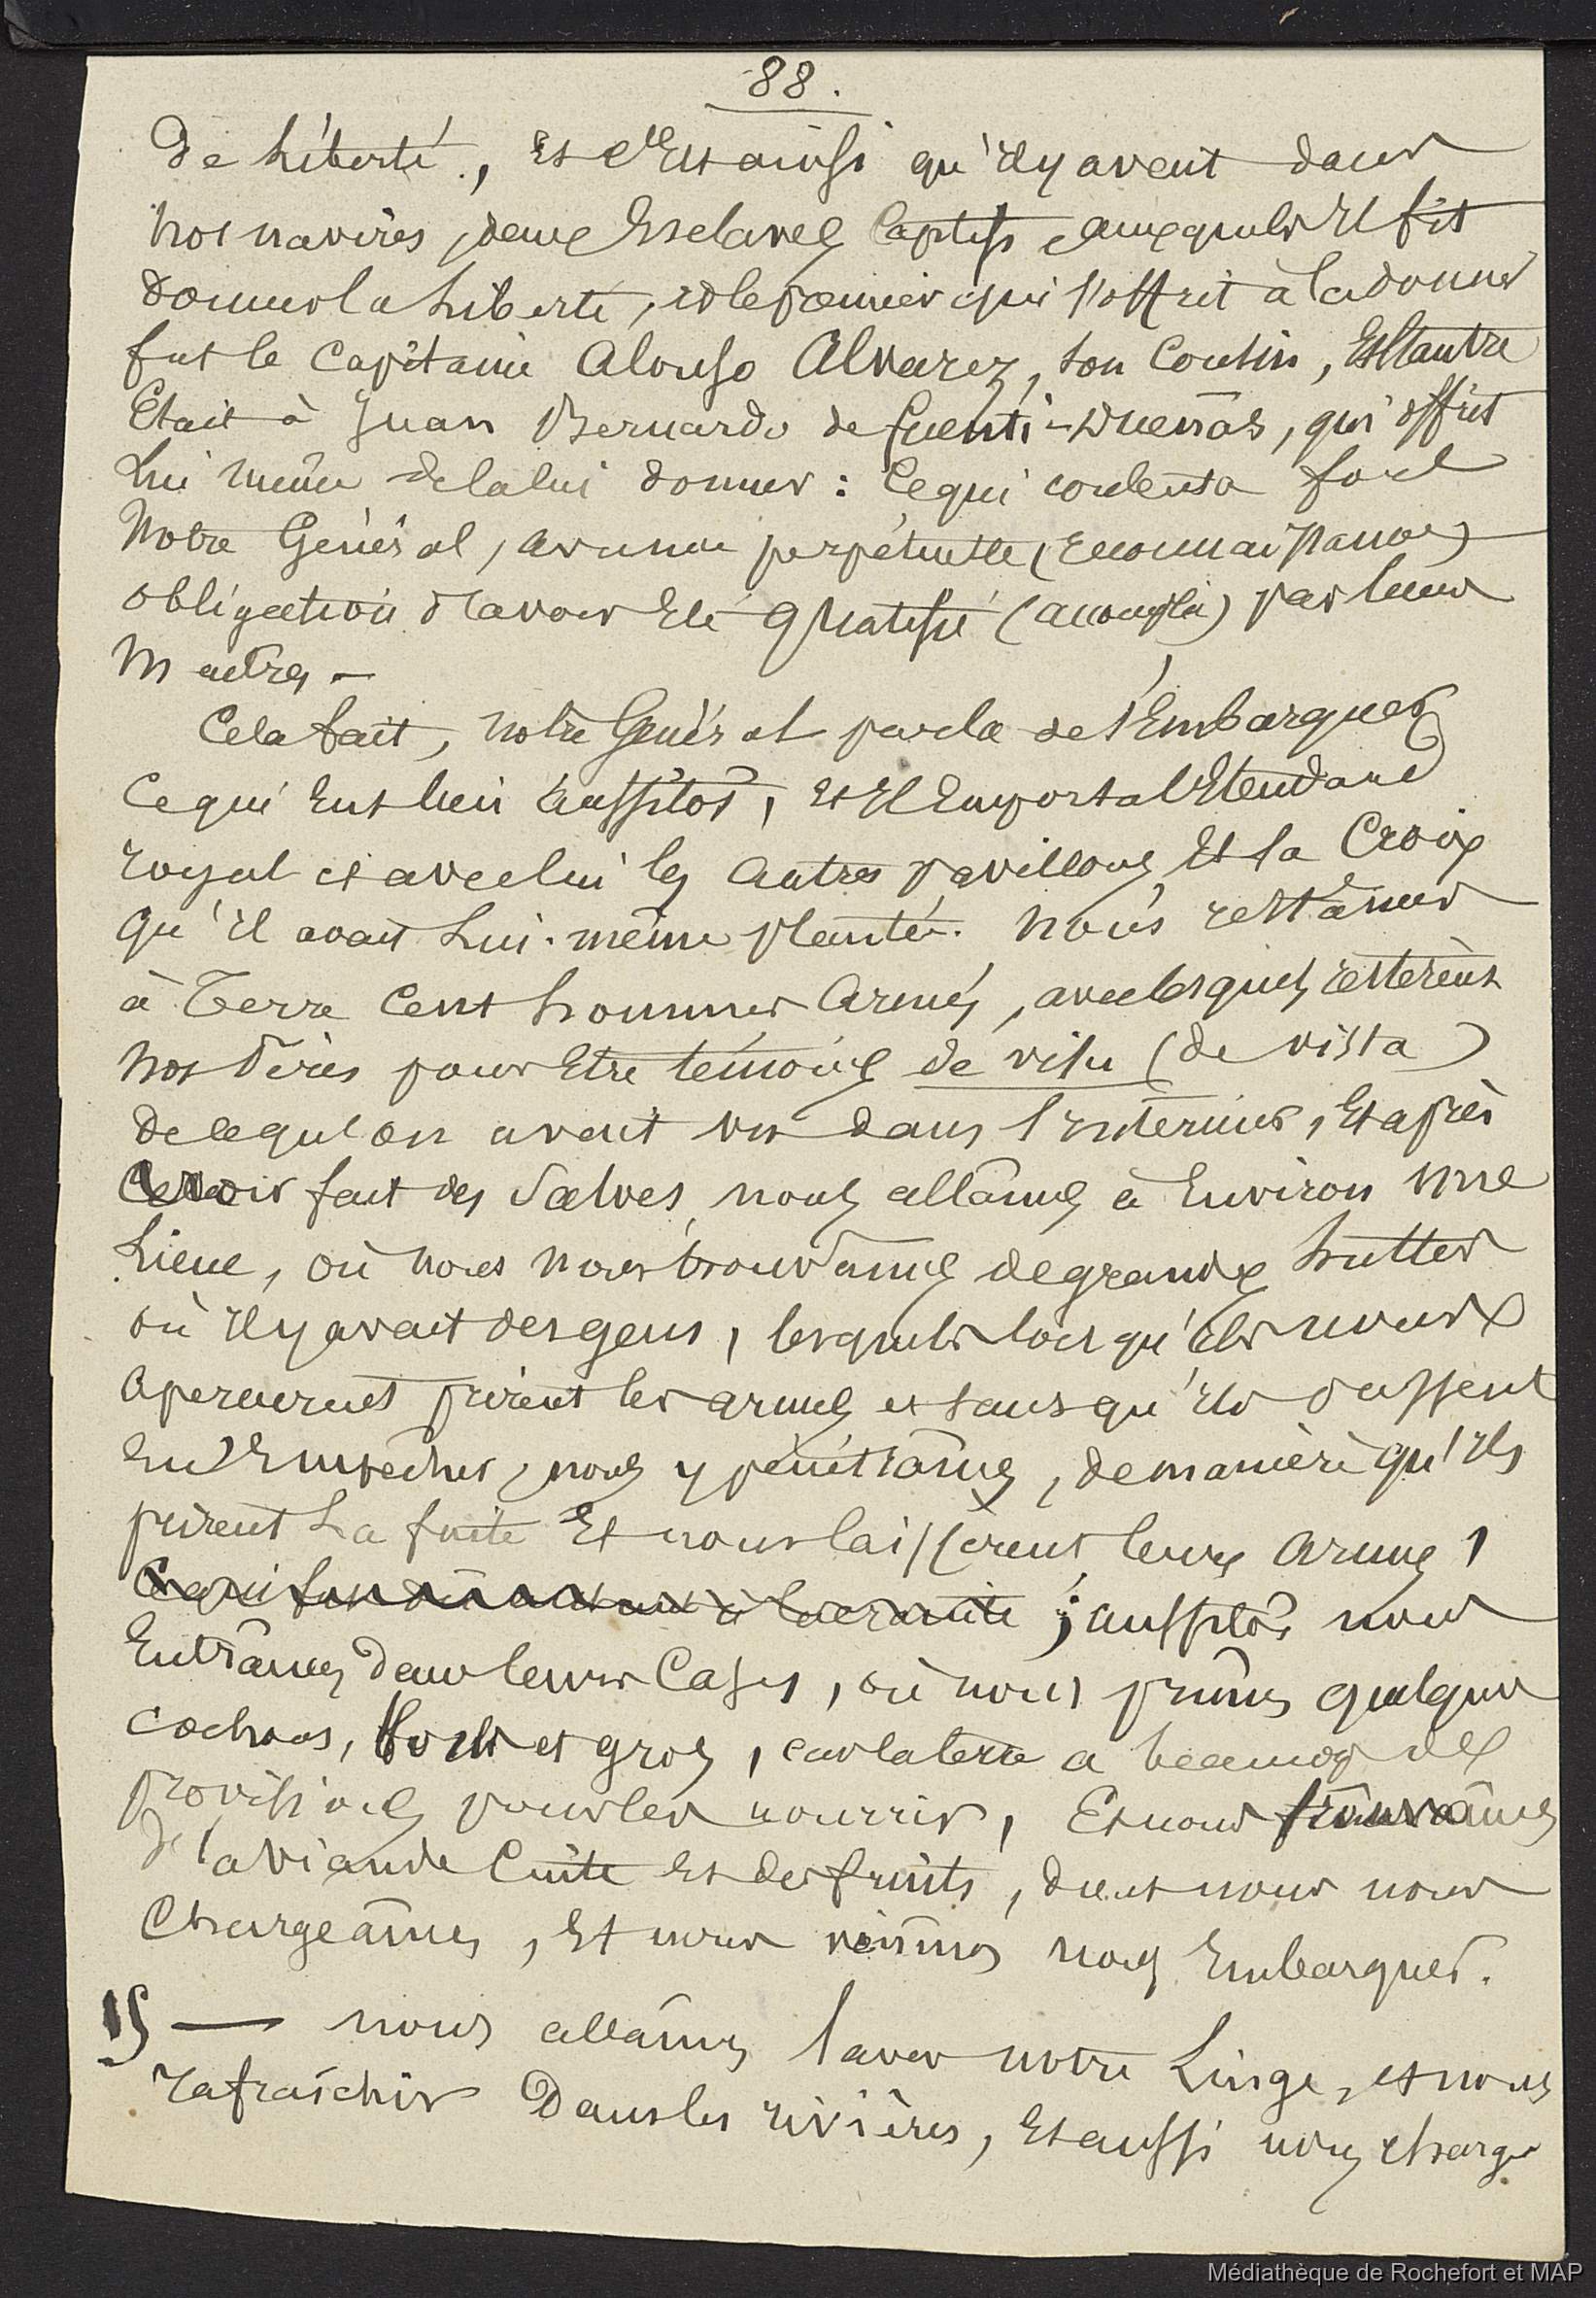 88.
De Liberté, Et c'Est ainsi qu'Il y avait dans
nos navires, deux Esclaves Captifs auxquels Il fit
donner la Liberté, et le premier qui s'offrit à la donner
fut le Capitaine Alonso Alvarez, son Cousin, Et l'autre
Etait à Juan Bernardo de fuenti-Duenas, qui offrit
Lui même de la lui donner : Ce qui contenta fort
Notre Général, avec une perpétuelle (reconnaissance)
obligation d'avoir Eté gratifié (accompli) par leurs
Maitres —
Cela fait, notre Général parla de s'Embarquer
Ce qui Eut lieu Aussitôt, et Il Emporta l'Etendard
royal et avec lui les Autres pavillons Et la Croix
qu'Il avait Lui-même plantée. Nous restâmes
à Terre Cent hommes Armés, avec lesquels restèrent
nos Pères pour Etre témoins de visu (de vista)
de ce qu'on avait vu dans l'Intérieur, Et après
avoir fait des Salves, nous allâmes à Environ Une
Lieue, où nous nous trouvâmes de grandes huttes
où Il y avait des gens, lesquels lorsqu'Ils nous
aperçurent prirent les armes et sans qu'Ils pussent
en Empêcher, nous y pénétrâmes, de manière qu'Ils
prirent La fuite Et nous laissèrent leurs Armes,
; aussitôt nous
Entrâmes dans leurs Cases, où nous prîmes quelques
cochons, forts et gros, car la terre a beaucoup de
provisions pour les nourrir, Et nous trouvâmes
de la viande Cuite Et des fruits, dont nous nous
Chargeâmes, Et nous vînmes nous Embarquer.
15 — nous allâmes laver notre Linge, et nous
rafraîchir Dans les rivières, Et aussi nous charge
Médiathèque de Rochefort et MAP